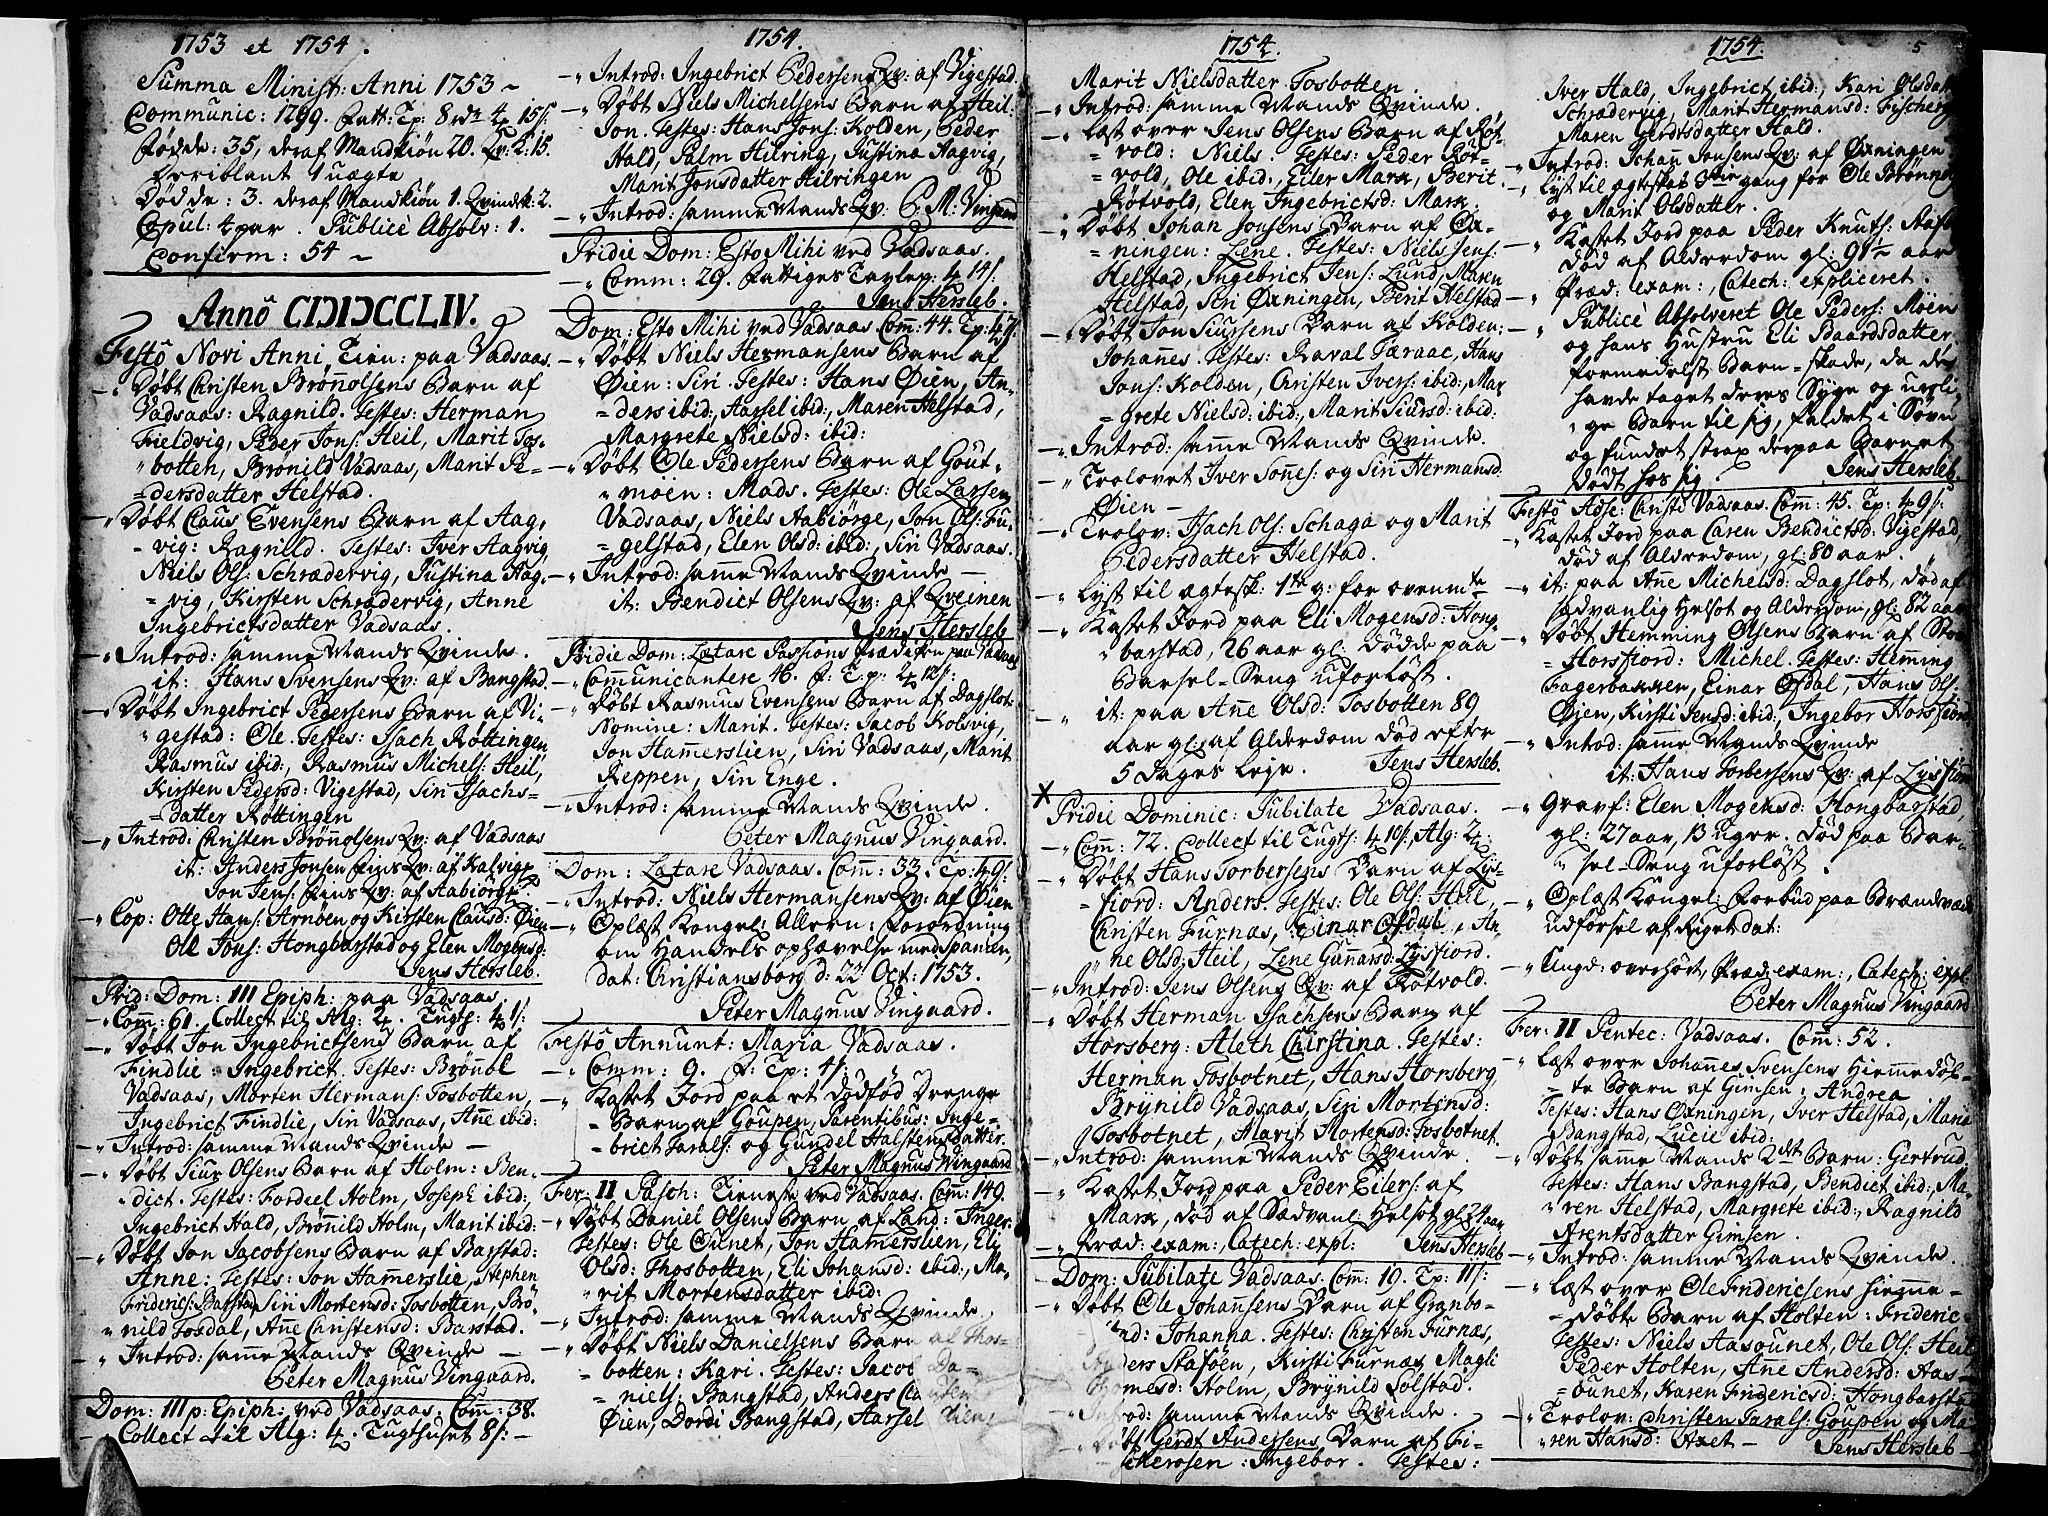 1753 et 1754.
Summa Minist: Anni 1753 ~
Communic: 1799. Fatt: Tp: 8 rdr 4 15/:
Fødde: 35, deraf Mandkiön 20. Qv:k: 15.
iblant 1 uægte
Dødde: 3. deraf Mandkiön 1. Qvindk: 2.
Copul: 4 par. Publicè Absolv: 1.
Confirm: 54 ~
Annô CIƆIƆCCLIV.
Festô Novi Anni, Tien: paa Vadsaas.
Døbt Christen Brønnolsens Barn af
Vadsaas: Ragnild. Testes: Herman
Trieldvig, Peder Jons: Heil, Marit Tos-
botten, Brønild Vadsaas, Marit Pe-
dersdatter Helstad.
Døbt Claus Evensens Barn af Aag-
vig: Ragnild. Testes: Iver Aagvig
Niels Ols: Schrædervig, Justina Aag-
vig, Kirsten Schradervig, Anne
Ingebrictsdatter Vadsaas.
Introd: samme Mands Qvinde.
it: Hans Svensens Qv: af Bangstad.
Døbt Ingebrict Pedersens Barn af Vi-
gestad: Ole. Testes: Isach Røttingen
Rasmus ibid:, Rasmus Michels: Heil,
Kirsten Pedersd: Vigestad, Siri Isachs-
datter Røttingen
Introd: Christen Brønnolsens Qv: af Vadsaas
it: Anders Jonsen Fins Qv: af Kalvig
Jon Jens: Fins Qv: af Aabiörge
Cop: Otte Hans: Arnøen og Kirsten Clausd: Øien
Ole Jons: Hongbarstad og Elen Mogensd:
Jens Hersleb.
Prid: Dom: III Epiph: paa Vadsaas.
Com: 61. Collect til Alg: 2. Tugts: 4 1/:
Døbt Jon Ingebrictsens Barn af
Findlie: Ingebrict. Testes: Brønel
Vadsaas, Morten Hermans: Tosbotten,
Ingebrict Findlie, Siri Vadsaas, Ane ibid:
Introd: samme Mands Qvinde —
Døbt Siur Olsens Barn af Holm: Ben-
dict. Testes: Fordeel Holm, Joseph ibid:,
Ingebrict Hald, Brønild Holm, Marit ibid:
Døbt Jon Jacobsens Barn af Barstad:
Anne: Testes: Jon Hamerslie, Stephen
Friderics: Barstad, Siri Mortensd: Tosbotten, Brø-
nild Tosdal, Ane Christensd: Barstad.
Introd: same Mands Qvinde —
Peter Magnus Vingaard.
Dom: III p: Epiph: ved Vadsaas. Com: 38.
Collect til Alg: 4. Tugthuset 8/: -
1754.
Introd: Ingebrict Pedersens Qv: af Vigestad.
Døbt Niels Michelsens Barn af Heil:
Jon. Testes: Hans Jons: Kolden, Peder
Hald, Palm Hilring, Justina Aagvig,
Marit Jonsdatter Hilringen
Introd: samme Mands Qv: P. M. Vingaard
Pridie Dom: Esto Mihi ved Vadsaas.
Comm: 29. Fattiges Tavlep: 4 14/:
Jens Hersleb.
Dom: Esto Mihi ved Vadsaas Com: 44. Tp: 4
Døbt Niels Hermansens Barn af
Øien: Siri. Testes: Hans Øien, An-
ders ibid:, Aarsel ibid:, Maren Helstad,
Margrete Nielsd: ibid:
Døbt Ole Pedersens Barn af Gout-
möen: Mads. Testes: Ole Larsen
Vadsaas, Niels Aabiörge, Jon Ols: Fu-
gelstad, Elen Olsd: ibid:, Siri Vadsaas.
Introd: samme Mands Qvinde —
it: Bendict Olsens Qv: af Qveinen
Jens Hersleb
Pridie Dom: Lætare Passions Prædiken paa Vadsaas
Communicantere 46. F: Tp: 2 12/:
Døbt Rasmus Evensens Barn af Dagslot:
Nomine: Marit. Testes: Jacob Kolsvig,
Jon Hamerslien, Siri Vadsaas, Marit
Reppen, Siri Enge.
Introd: samme Mands Qvinde.
Peter Magnus Vingaard.
Dom: Lætare Vadsaas. Com: 33. Tp: 4 9/:
Introd: Niels Hermansens Qv: af Øien
Oplæst Kongel: Allern: Forordning
om Handels ophævelse med Spanien,
dat: Christiansborg d: 22 Oct: 1753.
Peter Magnus Vingaard.
Festô Annunt: Maria Vadsaas.
Comm: 9. F: Tp: 4/:
Kastet Jord paa et dödföd Drenge
Barn af Goupen, Parentibus: Inge-
brict Tarals: og Gundel Halstensdatter.
Peter Magnus Vingaard
Fer: II Pasch: Tieneste ved Vadsaas. Com: 149.
Døbt Daniel Olsens Barn af Land: Inger
Testes: Ole Øinet, Jon Hamerslien, Eli
Olsd: Thosbotten, Eli Johansd: ibid:, Ma-
rit Mortensdatter ibid:
Introd: samme Mands Qvinde.
Døbt Niels Danielsens Barn af Thos-
botten: Kari. Testes: Jacob Da-
niels: Bangstad, Anders
Øien, Dordi Bangstad, Aarsel Øien
1754.
Marit Nielsdatter Tosbotten
Introd: samme Mands Qvinde.
Læst over Jens Olsens Barn af Røt-
vold: Niels. Testes: Peder Røt-
vold, Ole ibid:, Eiler Marx, Berit
Røtvold, Elen Ingebrictsd: Marx.
Døbt Johan Jonsens Barn af Øx-
ningen: Lene. Testes: Niels Jens:
Helstad, Ingebrict Jens: Lund, Maren
Helstad, Siri Øxningen, Berit Helstad
Døbt Jon Siursens Barn af Kolden:
Johannes. Testes: Raval Færaae, Hans
Jons: Kolden, Christen Ivers: ibid:, Mar-
grete Nielsd: ibid:, Marit Siursd: ibid:
Introd: samme Mands Qvinde.
Trolovet Iver Sones: og Siri Hermansd:
Øien —
Trolov: Isach Ols: Schaga og Marit
Pedersdatter Helstad.
Lyst til ægtesk: 1te g: for ovenmte
Kastet Jord paa Eli Mogensd: Hong-
barstad, 26 aar gl: dødde paa
Barsel-Seng uforløst.
it: paa Ane Olsd: Tosbotten 89
aar gl: af Alderdom død efter
5 Dages leje. Jens Hersleb.
X Pridie Dominic: Jubilate Vadsaas.
Com: 72. Collect til Tugts: 4 10/:, Alg: 2:
Døbt Hans Torbersens Barn af Lys-
fiord: Anders. Testes: Ole Ols: Heil,
Christen Furnæs, Einar Øsdal, An-
ne Olsd: Heil, Lene Gunnarsd: Lysfiord.
Introd: Jens Olsens Qv: af Røtvold.
Døbt Herman Isachsens Barn af
Horsberg: Aleth Christina. Testes:
Herman Tosbotnet, Hans Horsberg,
Brÿnild Vadsaas, Siri Mortensd:
Tosbotnet, Marit Mortensd: Tosbotnet.
Introd: samme Mands Qvinde.
Kastet Jord paa Peder Eilers: af
Marx, død af Sædvanl: Helsot gl: 24 aar
Præd: exam:, Catech: expl: Jens Hersleb
Dom: Jubilate Vadsaas. Com: 19. Tp: 11/:
Døbt Ole Johansens Barn af Granbo-
Johanna. Testes: Christen Furnæs,
Anders Stasøen, Kirsti Furnæs, Magli
Thomesd: Holm, Brÿnild Solstad.
Introd: samme Mands Qvinde.
Døbt Gerdt Andersens Barn af Fi-
scherosen: Ingebor. Testes:
1754. 5
Iver Hald, Ingebrict ibid:, Kari Olsdatt
Schradervig, Marit Hermansd:
Maren Gerdtsdatter Hald.
Introd: Johan Jonsens Qv: af Øxningen
Lyst til ægteskab 3die gang for Ole Brønne
og Marit Olsdatter.
Kastet Jord paa Peder Knuts:
død af Alderdom gl: 91½ aar
Præd: exam:, Catech: expliceret.
Publicè Absolveret Ole Peders: Moen
og hans Hustru Eli Baardsdatter
formedelst Barn-skade, da de
havde taget deres Syge og uroli-
ge Barn til sig, faldet i Søvn
og fundet strax derpaa Barnet
dödt hos sig. Jens Hersleb.
Festô Adsc: Christi Vadsaas. Com: 45. Tp: 4 9/:
Kastet Jord paa Caren Bendictsd: Vigestad,
død af Alderdom, gl: 80 aar.
it: paa Ane Michelsd: Dagslot, død af
sædvanlig Helsot og Alderdom, gl: 82 aar
Døbt Hemming Olsens Barn af Stor-
Horsfiord: Michel. Testes: Hemming
Fagerbakken, Einar Øsdal, Hans Ols:
Øien, Kirsti Jensd: ibid:, Ingebor Horsfiord
Introd: samme Mands Qvinde
it: Hans Torbersens Qv: af Lysfiord
Gravf: Elen Mogensd: Hongbarstad,
gl: 27 aar, 13 Uger. død paa Bar-
sel-Seng uforløst.
Oplæst Kongel: Forbud paa Brændeveds
udførsel af Riget dat:
Ungd: overhørt, Præd: exam:, Catech: expl:
Peter Magnus Vingaard
Fer: II Pentec: Vadsaas. Com: 52.
Læst over Johannes Svensens Hiemmedøb-
te Barn af Gimsen: Andrea
Testes: Hans Oxningen, Iver Helstad, Maria
Bangstad, Lucie ibid:
Døbt samme Mands 2det Barn: Gertrud
Testes: Hans Bangstad, Bendict ibid:, Ma-
ren Helstad, Margrete ibid:, Ragnild
Arentsdatter Gimsen.
Introd: samme Mands Qvinde.
Læst over Ole Fridericsens hiemme-
döbte Barn af Holten: Frideric-
Testes: Niels Aasounet, Ole Ols: Heil
Peder Holten, Ane Andersd: Aas-
ounet, Karen Fridericsd: Hongbarstad
Trolov: Christen Tarals: Goupen og Ma-
ren Hansd: Axet — Jens Hersleb —